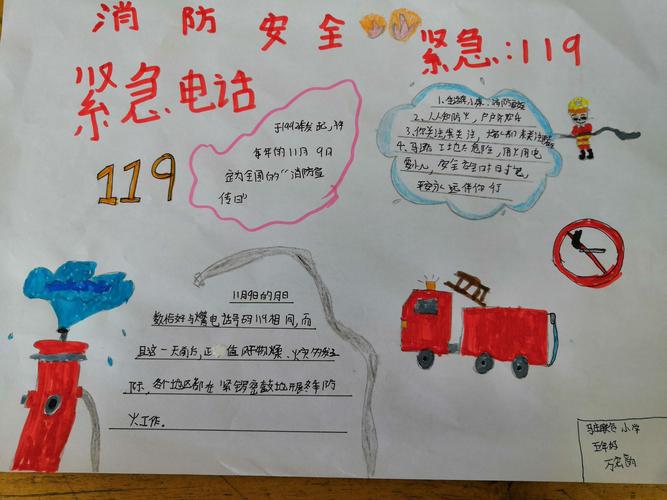 消防安全
紧急:119
紧急电话
119
于1992年发起,将
每年的11月9日
定为全国的“消防宣
传日”
2、人人知防火,户户
3、你关注我关注,
4、马路工地太危险,用火用电
要小心,安全
平安永远伴你行
11月9日的月日
数恰好与火警电话号码119相同,而
且这一天前后,正值风干物燥、火灾多发
际,各地区都在紧锣密鼓地开展冬季防
火工作。
小学